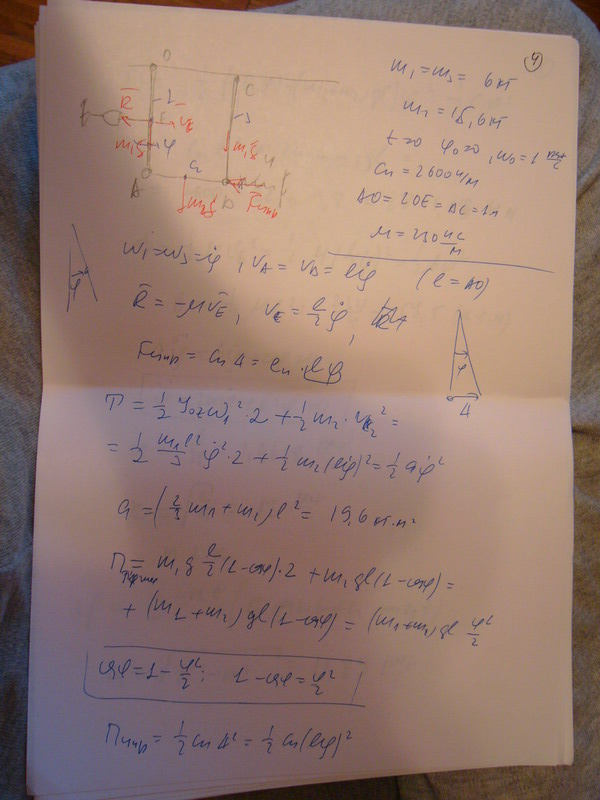 4
m₁ = m₃ = 6 кг
m₂ = 15,6 кг
t=0 φ₀=0, ω₀=1 рад/с
Cп = 2600 н/м
AO = 2OE = DC = 1м
μ = 230 нс/м
O
C
1
3
R̄
E
V̄E
m₁ḡ
φ
m₁ḡ
A
m₂ḡ
D
F̄упр
ω₁ = ω₃ = φ̇, vA = vD = lφ̇ (l = AO)
R̄ = -μv̄E, vE = l/2 φ̇,
Fупр = cп Δ = cп · lφ
φ
φ
Δ
T = 1/2 JOz ω₁² · 2 + 1/2 m₂ · v² =
= 1/2 m₁l²/3 φ̇² · 2 + 1/2 m₂ (lφ̇)² = 1/2 aφ̇²
a = (2/3 m₁ + m₂) l² = 19,6 кг·м²
П = m₁g l/2 (1 - cosφ) · 2 + m₂gl(1 - cosφ) =
+ (m₁ + m₂) gl (1 - cosφ) = (m₁ + m₂) gl φ²/2
cosφ = 1 - φ²/2; 1 - cosφ = φ²/2
Пупр = 1/2 cп Δ² = 1/2 cп (lφ)²